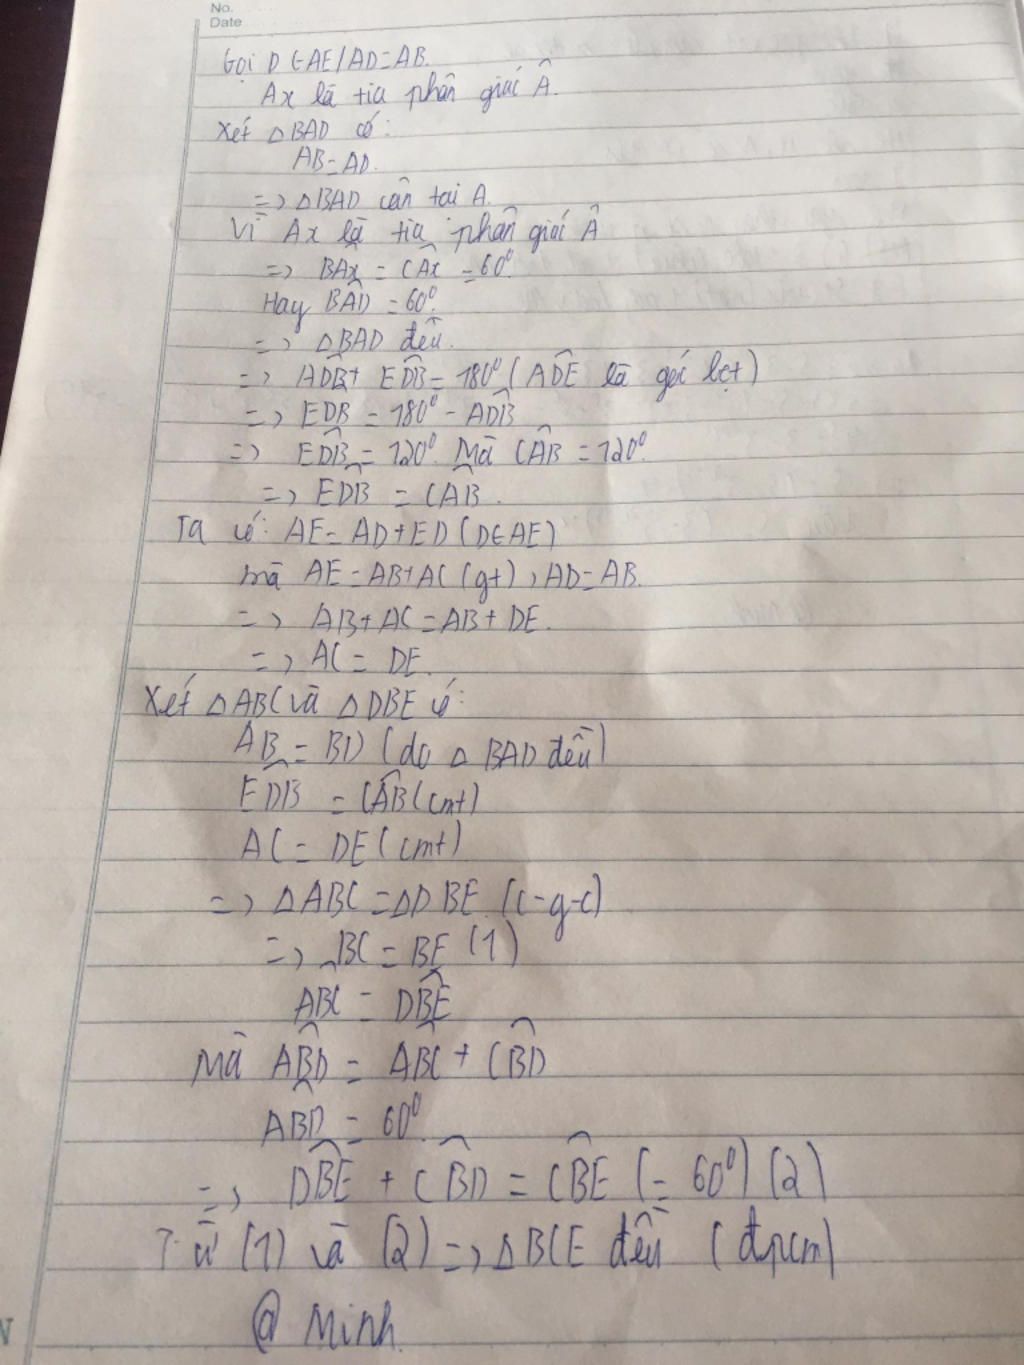 No.
Date
Gọi D ∈ AE / AD = AB.
Ax là tia phân giác Â.
Xét △BAD có:
AB = AD.
=> △BAD cân tại A.
Vì Ax là tia phân giác Â
=> BAx̂ = CAx̂ = 60⁰.
Hay BAD̂ = 60⁰.
=> △BAD đều.
=> ADB̂ + EDB̂ = 180⁰ (ADÊ là góc bẹt)
=> EDB̂ = 180⁰ - ADB̂
=> EDB̂ = 120⁰. Mà CAB̂ = 120⁰.
=> EDB̂ = CAB̂.
Ta có: AE = AD + ED (D ∈ AE)
mà AE = AB + AC (gt), AD = AB.
=> AB + AC = AB + DE.
=> AC = DE.
Xét △ABC và △DBE có:
AB = BD (do △ BAD đều)
EDB̂ = CAB̂ (cmt)
AC = DE (cmt)
=> △ABC = △DBE (c-g-c)
=> BC = BE (1)
ABĈ = DBÊ
Mà ABD̂ = ABĈ + CBD̂
ABD̂ = 60⁰.
=> DBÊ + CBD̂ = CBÊ (= 60⁰) (2)
Từ (1) và (2) => △BCE đều (đpcm)
@ Minh.